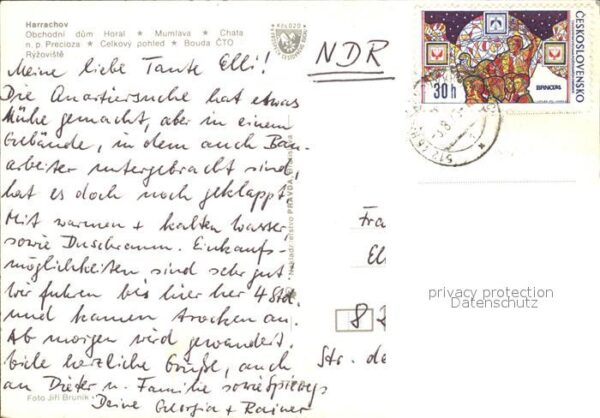 Harrachov
Obchodní dům Horal ★ Mumlava ★ Chata
n. p. Precioza ★ Celkový pohled ★ Bouda ČTO
Ryžoviště
Meine liebe Tante Elli!
Die Quartiersuche hat etwas
Mühe gemacht, aber in einem
Gebäude, in dem auch Bau-
arbeiter untergebracht sind,
hat es doch noch geklappt
Mit warmen + kalten Wasser
sowie Duschraum. Einkaufs-
möglichkeiten sind sehr gut
Wir fuhren bis hier her 4 Std.
und kamen trocken an.
Ab morgen wird gewandert.
Viele herzliche Grüße, auch
an Dieter u. Familie sowie
Deine Georgia + Rainer
Foto Jiří Bruník
PRAVDA
NDR
ČESKOSLOVENSKO
30 h
Fra
El
8 2
Str. de
privacy protection
Datenschutz